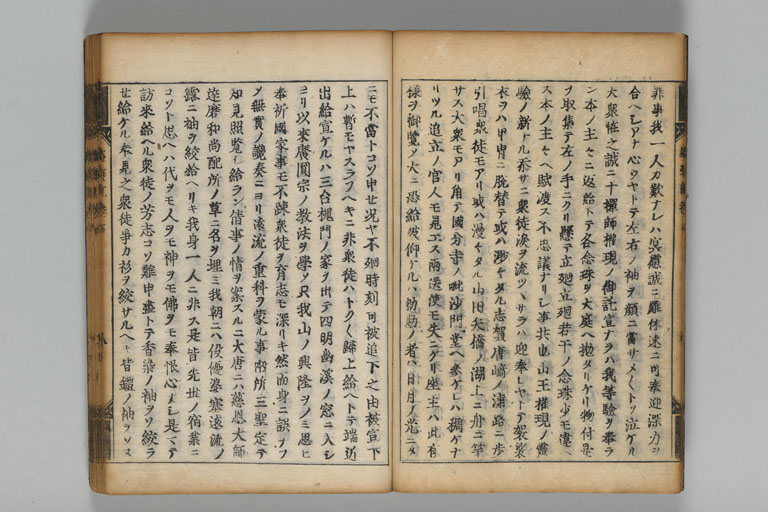 非事我一人カ歎ナレハ冥慮誠ニ難休速ニ可奉迎深力ヲ
合ヘシアレト心ウヤトテ左右ノ袖ヲ顔ニ當サメ〱トソ泣ケル
大衆怪之誠ニ十禪師權現ノ御託宣ナラハ我等驗ヲ奉ラ
ン本ノ主々ニ返給トテ各念珠ヲ大庭ヘ拋タリケリ物付是
ヲ取集テ左ノ手ニクリ懸テ立廻立廻若干ノ念珠少モ違ヘ
ス本ノ主々ヘ賦渡ス不思議ナリシ事共也山王權現ノ靈
驗ノ新ナル忝サニ衆徒淚ヲ流ツヽサラハ迎奉レヤトテ袈裟
衣ヲハ甲冑ニ脫替テ或ハ渺々タル志賀唐崎ノ浦路ニ步
引唱衆徒モアリ或ハ漫々タル山田矢橋ノ湖上ニ舟ニ竿
サス大衆モアリ角テ國分寺ノ毗沙門堂ヘ參ケレハ稠ケナ
リツル追立ノ官人モ見エス兩送使モ失ニケリ座主ハ此有
樣ヲ御覽メ大ニ恐給 仰ケルハ勅勘ノ者ハ日月ノ光ニタ
ニモ不當トコソ申セ況ヤ不廻時刻可被追下之由被宣下
上ハ暫モヤスラフヘキニ非衆徒ハトク〱歸上給ヘトテ端近
出給宣ケルハ三台槐門ノ家ヲ出テ四明幽溪ノ窓ニ入シ
ヨリ以來廣圓宗ノ敎法ヲ學メ只我山ノ興隆ヲノミ思ヒ
奉祈國家事モ不疎衆徒ヲ育志モ深リキ然而身ニ誤ヲフ
メ無實ノ讒奏ニヨリ遠流ノ重科ヲ蒙ル事兩所三聖定テ
知見照覽シ給ラン倩事ノ情ヲ案スルニ大唐ニハ慈恩大師
達磨和尚配所ノ草ニ名ヲ埋ミ我朝ニハ役優婆塞遠流ノ
露ニ袖ヲ絞給ヘリキ我身一人ニ非ス是皆先世ノ宿業ニ
コソト思ヘハ代ヲモ人ヲモ神ヲモ佛ヲモ奉恨心ナシ是マテ
訪來給ヘル衆徒ノ芳志コソ難申盡トテ香染ノ袖ヲソ絞ラ
セ給ケル奉見之衆徒爭カ衫ヲ絞サルヘキ皆鎧ノ袖ヲソヌ